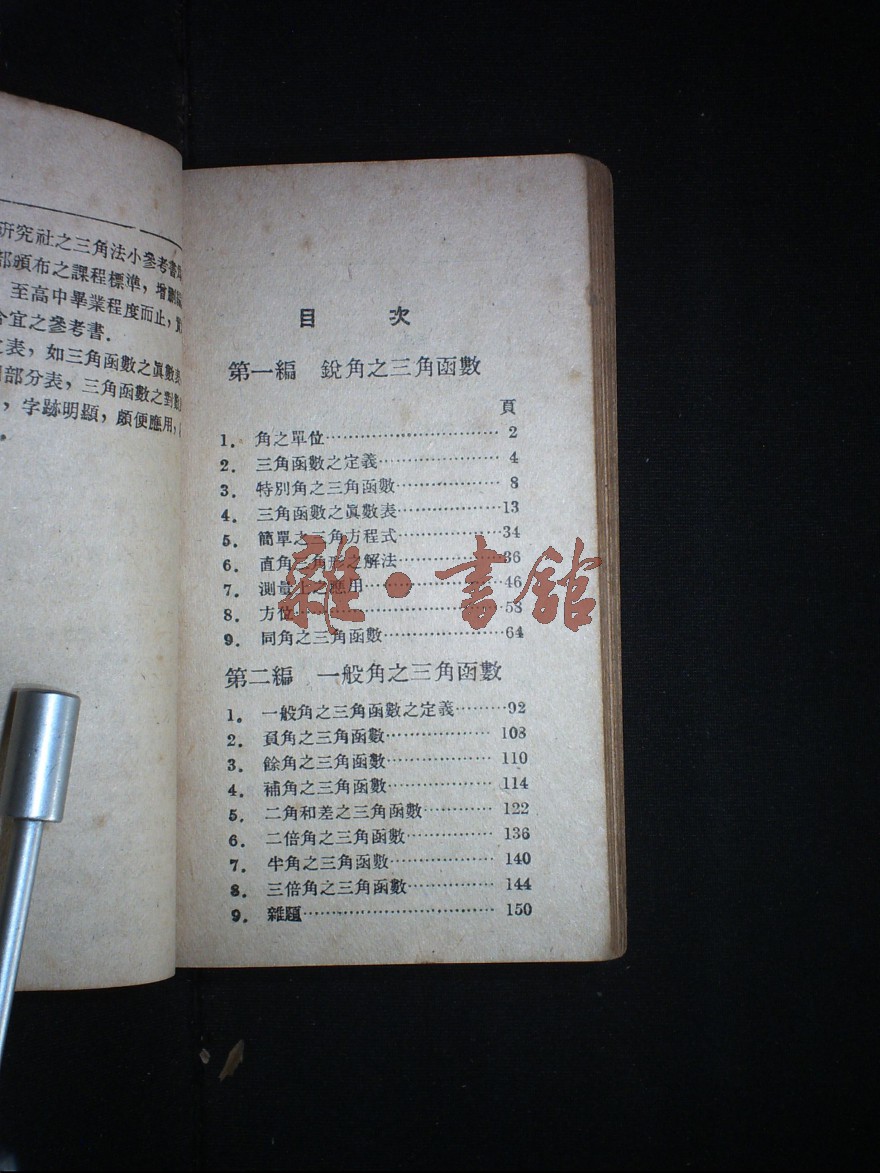 研究社之三角法小參考書
部頒布之課程標準，增刪
至高中畢業程度而止，實
合宜之參考書．
表，如三角函數之眞數表
部分表，三角函數之對數
，字跡明顯，頗便應用，
目 次
第一編 銳角之三角函數
頁
1. 角之單位 2
2. 三角函數之定義 4
3. 特別角之三角函數 8
4. 三角函數之眞數表 13
5. 簡單之三角方程式 34
6. 直角三角形之解法 36
7. 測量上之應用 46
8. 方位 58
9. 同角之三角函數 64
雜·書館
第二編 一般角之三角函數
1. 一般角之三角函數之定義 92
2. 負角之三角函數 108
3. 餘角之三角函數 110
4. 補角之三角函數 114
5. 二角和差之三角函數 122
6. 二倍角之三角函數 136
7. 半角之三角函數 140
8. 三倍角之三角函數 144
9. 雜題 150